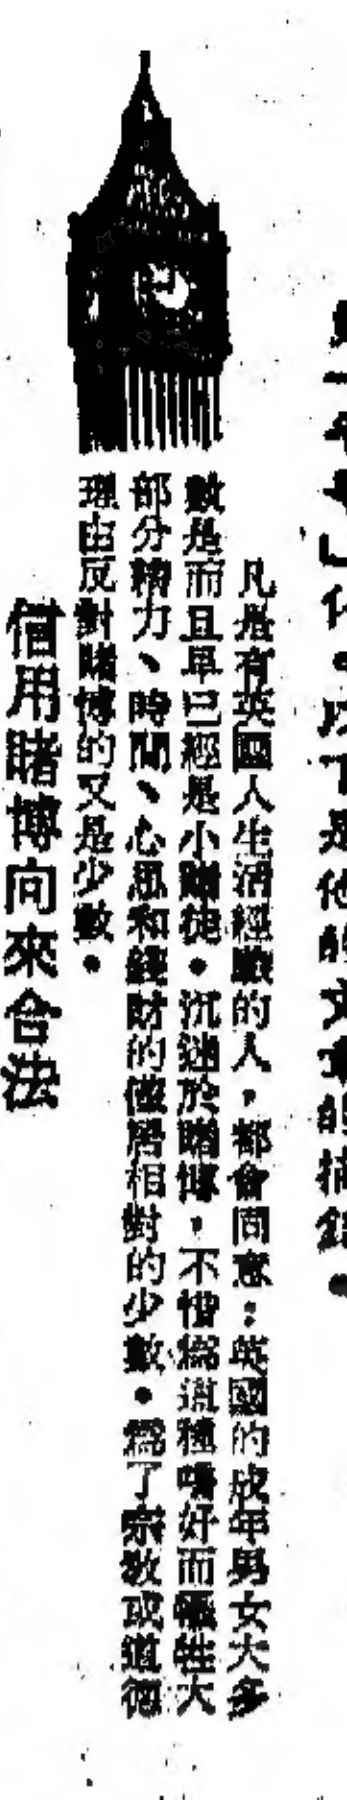 是他的文章的摘錄。
凡是有英國人生活經驗的人，都會同意：英國的成年男女大多
數是而且早已經是小賭徒。沉迷於賭博，不惜為這種嗜好而犧牲大
部分精力、時間、心思和錢財的僅居相對的少數。為了宗教或道德
理由反對賭博的又是少數。
信用賭博向來合法